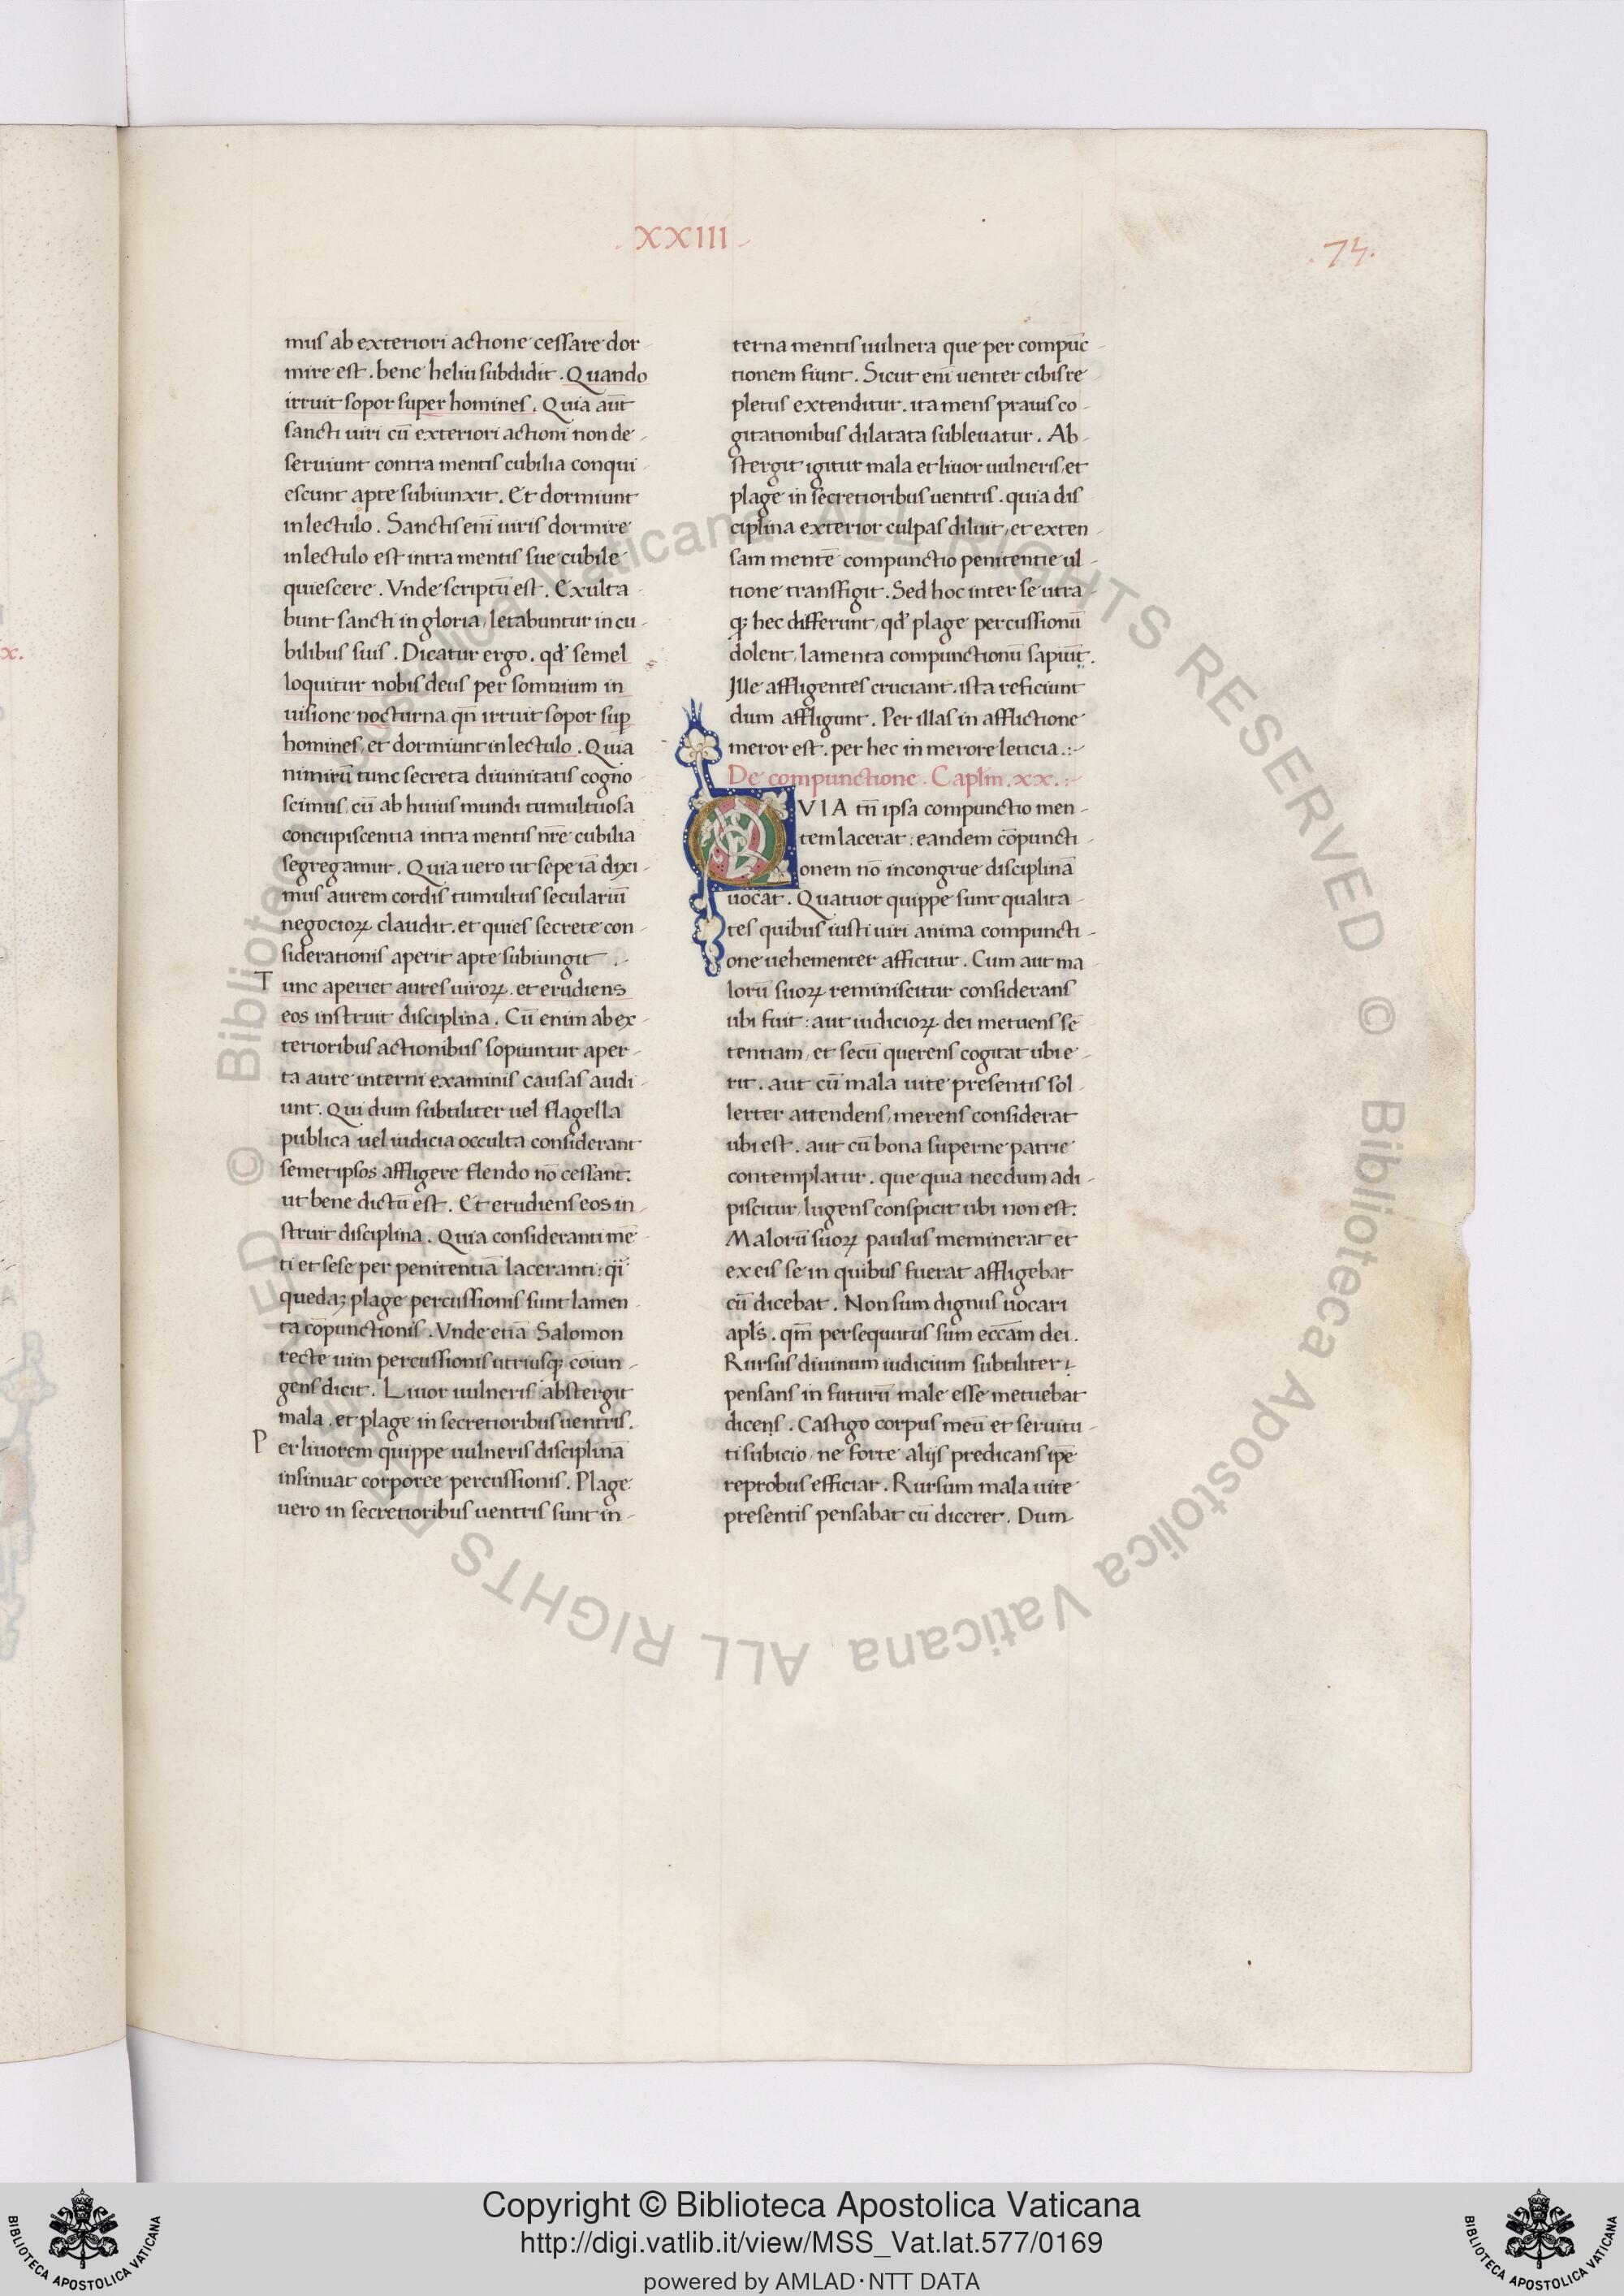 .XXIII.
.74.
mus ab exteriori actione cessare dor-
mire est. bene heliu subdidit. Quando
irruit sopor super homines. Quia aut̄
sancti uiri cū exteriori actioni non de-
seruiunt contra mentis cubilia conqui-
escunt apte subiunxit. Et dormiunt
in lectulo. Sanctis eni᷄ uiris dormire
in lectulo est intra mentis sue cubile
quiescere. Vnde scriptū est. Exulta-
bunt sancti in gloria, letabuntur in cu-
bilibus suis. Dicatur ergo. qđ semel
loquitur nobis deus per somnium in
uisione nocturna qn̄ irruit sopor suꝑ
homines, et dormiunt in lectulo. Quia
nimirū tunc secreta diuinitatis cogno-
scimus, cū ab huius mundi tumultuosa
concupiscentia intra mentis nr̄e cubilia
segregamur. Quia uero ut sepe iā dixi-
mus aurem cordis tumultus seculariū
negocioꝝ claudit. et quies secrete con-
siderationis aperit apte subiungit.-
Tunc aperiet aures uiroꝝ. et erudiens
eos instruit disciplina. Cū enim ab ex-
terioribus actionibus sopiuntur aper-
ta aure interni examinis causas audi-
unt. Qui dum subtiliter uel flagella
publica uel iudicia occulta considerant
semetipsos affligere flendo nō cessant:
ut bene dictū est. Et erudiens eos in-
struit disciplina. Quia consideranti mē-
ti et sese per penitentiā laceranti: q̄i
quedaꝫ plage percussionis sunt lamen-
ta cōpunctionis. Vnde etiā Salomon
recte uim percussionis utriusqꝫ coiun-
gens dicit. Liuor uulneris abstergit
mala. et plage in secretioribus uentris.
Per liuorem quippe uulneris disciplinā
insinuat corporee percussionis. Plage
uero in secretioribus uentris sunt in-
terna mentis uulnera que per compūc-
tionem fiunt. Sicut eni᷄ uenter cibis re-
pletus extenditur. ita mens prauis co-
gitationibus dilatata subleuatur. Ab-
stergit igitur mala et liuor uulneris, et
plage in secretioribus uentris. quia dis
ciplina exterior culpas diluit, et exten-
sam mentē compunctio penitentie ul-
tione transfigit. Sed hoc inter se utra-
qꝫ hec differunt, qđ plage percussionū
dolent, lamenta compunctionū sapiūt.
Ille affligentes cruciant. ista reficiunt
dum affligunt. Per illas in afflictione
meror est. per hec in merore leticia.:-
De compunctione. Caplm̄.xx.:-
QVIA tn̄ ipsa compunctio men-
tem lacerat: eandem cōpuncti-
onem nō incongrue disciplinā
uocat. Quatuor quippe sunt qualita-
tes quibus iusti uiri anima compuncti-
one uehementer afficitur. Cum aut ma-
lorū suoꝝ reminiscitur considerans
ubi fuit: aut iudicioꝝ dei metuens sē-
tentiam, et secū querens cogitat ubi e-
rit. aut cū mala uite presentis sol-
lerter attendens, merens considerat
ubi est. aut cū bona superne patrie
contemplatur. que quia necdum adi-
piscitur, lugens conspicit ubi non est:
Malorū suoꝝ paulus meminerat et
ex eis se in quibus fuerat affligebat
cū dicebat. Non sum dignus uocari
apl̄s. qm̄ persequutus sum ecc̄am dei.
Rursus diuinum iudicium subtiliter i-
pensans in futurū male esse metuebat
dicens. Castigo corpus meū et seruitu-
ti subicio, ne forte alijs predicans ip̄e
reprobus efficiar. Rursum mala uite
presentis pensabat cū diceret. Dum-
Copyright © Biblioteca Apostolica Vaticana
http://digi.vatlib.it/view/MSS_Vat.lat.577/0169
powered by AMLAD·NTT DATA
BIBLIOTECA APOSTOLICA VATICANA
BIBLIOTECA APOSTOLICA VATICANA
© Biblioteca Apostolica Vaticana ALL RIGHTS RESERVED © Biblioteca Apostolica Vaticana ALL RIGHTS RESERVED
x.